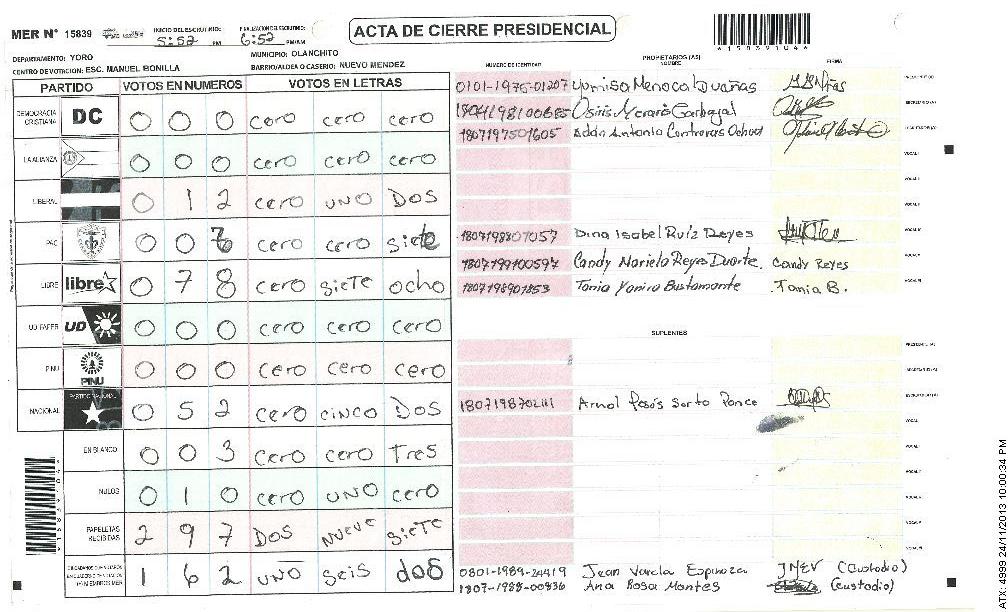 MER N° 15839 INICIO DEL ESCRUTINIO: 5:52 PM FINALIZACION DEL ESCRUTINIO: 6:52 PM/AM
ACTA DE CIERRE PRESIDENCIAL
DEPARTAMENTO: YORO MUNICIPIO: OLANCHITO
CENTRO DE VOTACION: ESC. MANUEL BONILLA BARRIO/ALDEA O CASERIO: NUEVO MENDEZ
PARTIDO VOTOS EN NUMEROS VOTOS EN LETRAS
DEMOCRACIA CRISTIANA DC 0 0 0 cero cero cero
LA ALIANZA 0 0 0 cero cero cero
LIBERAL 0 1 2 cero uno Dos
PAC 0 0 7 cero cero siete
LIBRE libre 0 7 8 cero siete ocho
UD FAPER UD 0 0 0 cero cero cero
PINU PINU 0 0 0 cero cero cero
NACIONAL PARTIDO NACIONAL 0 5 2 cero cinco Dos
EN BLANCO 0 0 3 cero cero Tres
NULOS 0 1 0 cero uno cero
PAPELETAS RECIBIDAS 2 9 7 Dos Nueve siete
1 6 2 uno seis dos
NUMERO DE IDENTIDAD PROPIETARIOS (AS) NOMBRE FIRMA
0101-1975-01207 Menocal Dueñas
Osiris Gerbajal
1807197501605 Addn Antonio Contreras Ochoa
1807198807057 Dina Isabel Ruiz Reyes
1807199100597 Candy Mariela Reyes Duarte. Candy Reyes
1807198901853 Tania Yanira Bustamante Tania B.
SUPLENTES
Arnol Sorto Ponce
0801-1989-24419 Jean Varela Espinoza JNEV (Custodio)
1807-1988-00836 Ana Rosa Montes (custodio)
ATX: 4999 24/11/2013 10:00:34 PM